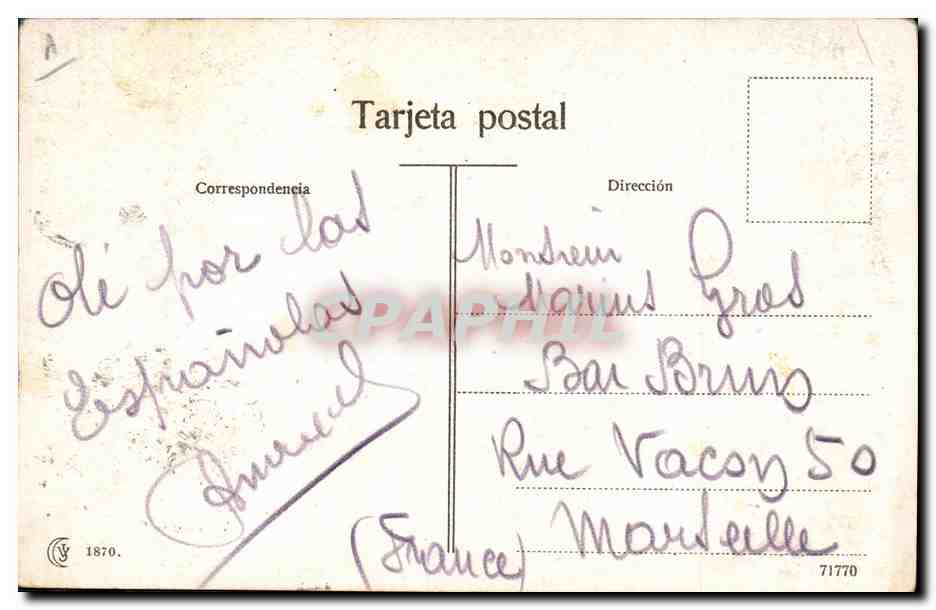 Tarjeta postal
Correspondencia
Dirección
Olé por las
Españolas
Monsieur
Marius Gros
Bar Bruno
Rue Vacon 50
Marseille
(France)
CPAPHIL
1870.
71770